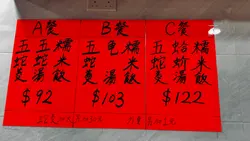 A餐
五蛇羹
五蛇湯
糯米飯
$92
B餐
五蛇羹
龟湯
糯米飯
$103
C餐
五蛇羹
蛤蚧湯
糯米飯
$122